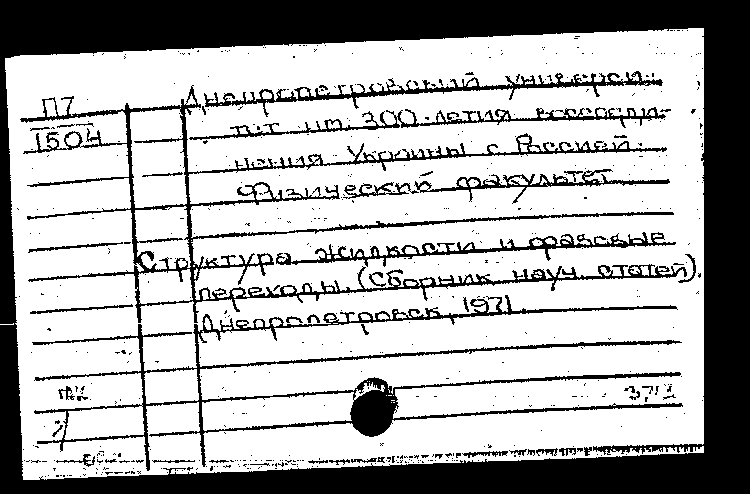 П7
1504
Днепропетровский универси-
тет им. 300-летия воссоеди-
нения Украины с Россией.
Физический факультет
Структура жидкости и фазовые
переходы. (Сборник науч. статей).
Днепропетровск, 1971.